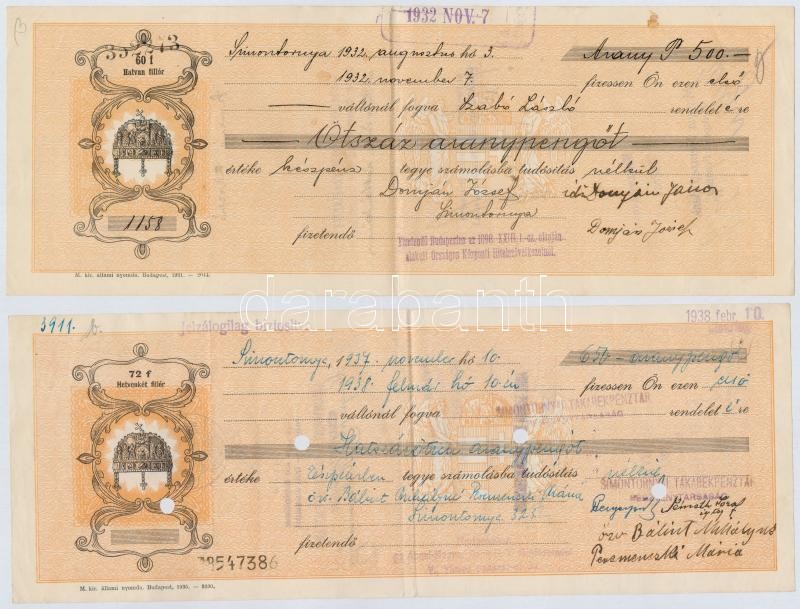 1932 NOV. 7
60 f
Hatvan fillér
Simontornya 1932. augusztus hó 3. Arany P 500.
1932. november 7. fizessen Ön ezen első
váltónál fogva Szabó László rendelet é re
Ötszáz aranypengőt
értéke készpénz tegye számolásba tudósítás nélkül
Domján József Domján János
Simontornya
1158
fizetendő Domján József
Fizetendő Budapesten az 1898. XXIII. t.-cz. alapján
alakult Országos Központi Hitelszövetkezetnél.
M. kir. állami nyomda. Budapest, 1931.
darabanth
3911. Jelzálogilag 1938 febr. 10.
72 f
Hetvenkét fillér
Simontornya, 1937. november hó 10. 650 aranypengő
1938. február hó 10-én fizessen Ön ezen első
váltónál fogva SIMONTORNYAI TAKARÉKPÉNZTÁR rendelet é re
RÉSZVÉNYTÁRSASÁG
Hatszázötven aranypengőt
értéke készpénzben tegye számolásba tudósítás nélkül
SIMONTORNYAI TAKARÉKPÉNZTÁR
RÉSZVÉNYTÁRSASÁG
özv. Bálint Mihályné Peremenszki Mária
Simontornya 325
özv Bálint Mihályné
fizetendő Peremenszki Mária
547386
M. kir. állami nyomda. Budapest, 1936.